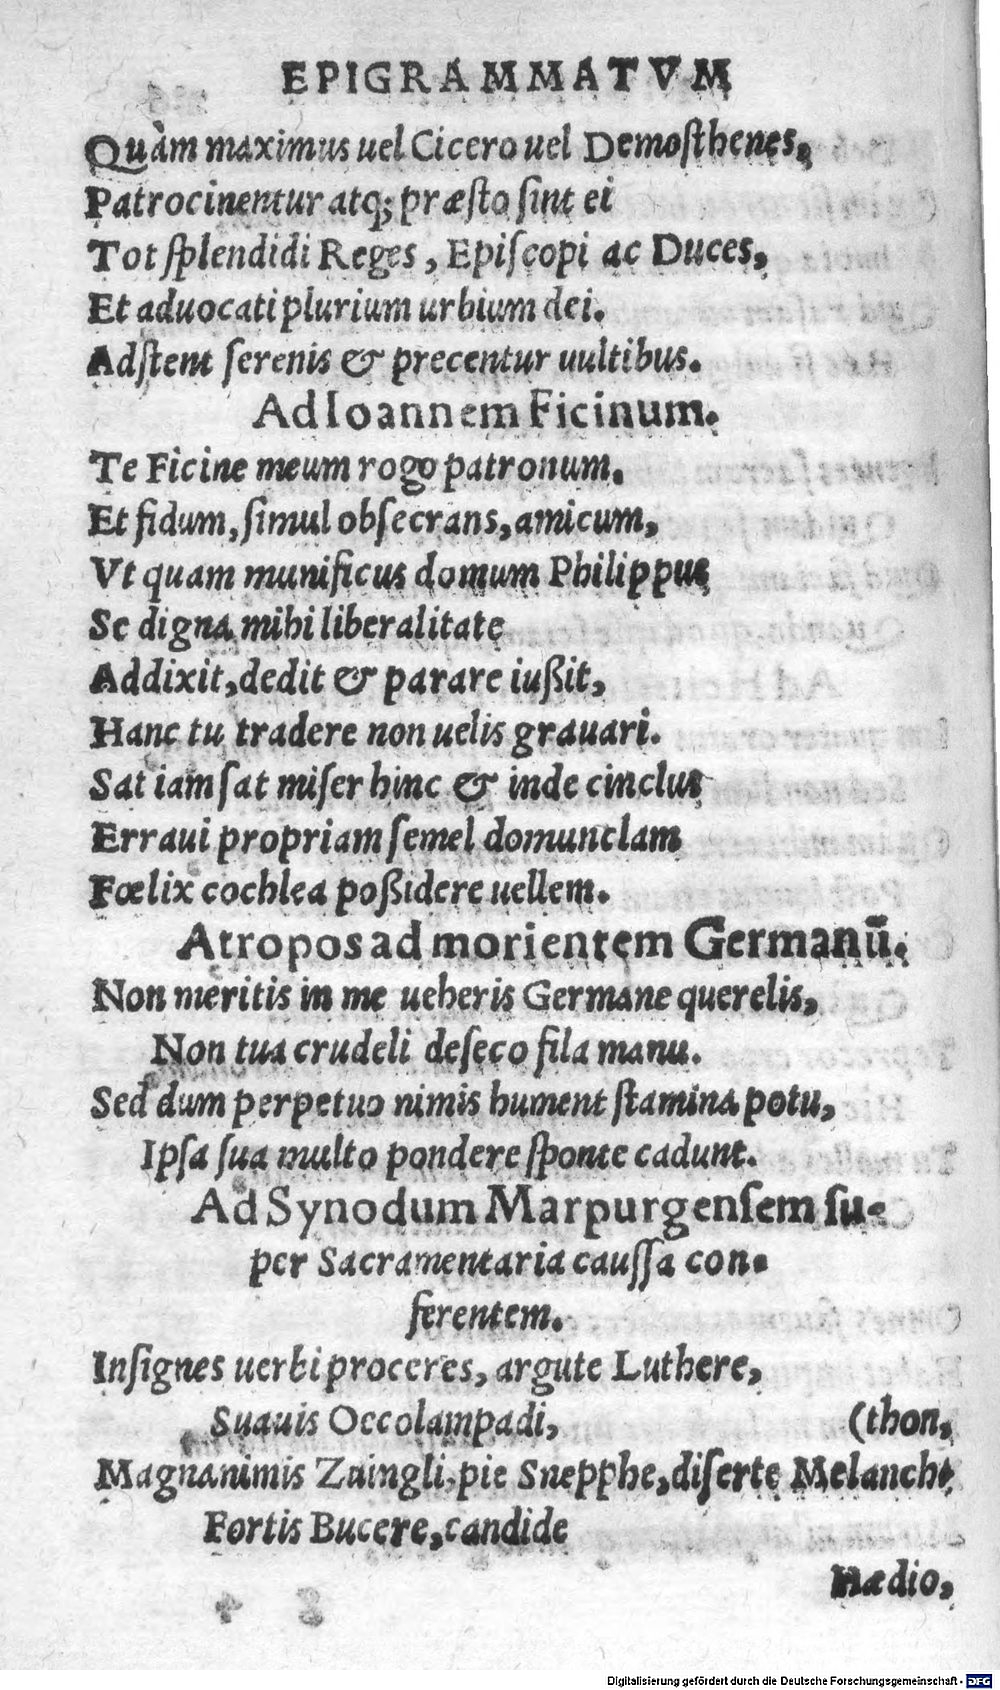 EPIGRAMMATVM
Quàm maximus uel Cicero uel Demosthenes,
Patrocinentur atq; præsto sint ei
Tot splendidi Reges, Episcopi ac Duces,
Et aduocati plurium urbium dei.
Adstent serenis & precentur uultibus.
Ad Ioannem Ficinum.
Te Ficine meum rogo patronum.
Et fidum, simul obsecrans, amicum,
Vt quam munificus domum Philippus
Se digna mihi liberalitate
Addixit, dedit & parare iußit,
Hanc tu tradere non uelis grauari.
Sat iam sat miser hinc & inde cinclus
Erraui propriam semel domunclam
Fœlix cochlea poßidere uellem.
Atropos ad morientem Germanū.
Non meritis in me ueheris Germane querelis,
Non tua crudeli deseco fila manu.
Sed dum perpetuo nimis hument stamina potu,
Ipsa sua multo pondere sponte cadunt.
Ad Synodum Marpurgensem su-
per Sacramentaria caussa con-
ferentem.
Insignes uerbi proceres, argute Luthere,
Suauis Oecolampadi, (thon,
Magnanimis Zuingli, pie Snepphe, diserte Melanch-
Fortis Bucere, candide
Hædio,
Digitalisierung gefördert durch die Deutsche Forschungsgemeinschaft - DFG